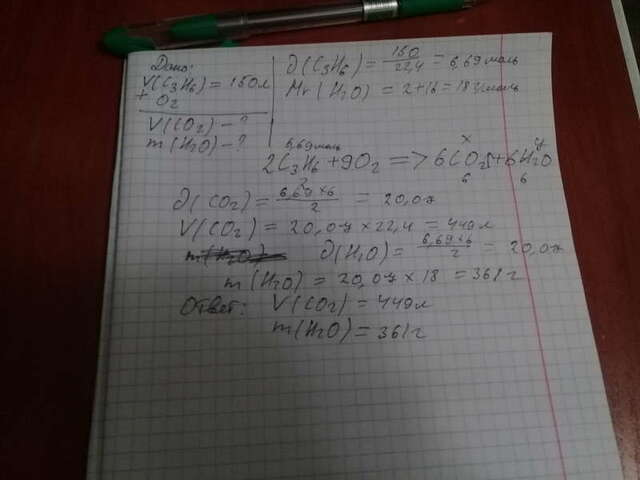 Дано:
V(C3H6) = 150л
+ O2
V(CO2) - ?
m(H2O) - ?
∂(C3H6) = 150/22,4 = 6,69 моль
Mr(H2O) = 2+16 = 18 г/моль
6,69 моль x y
2C3H6 + 9O2 => 6CO2↑ + 6H2O
2 6 6
∂(CO2) = 6,69×6/2 = 20,07
V(CO2) = 20,07 × 22,4 = 449л
m(H2O) ∂(H2O) = 6,69×6/2 = 20,07
m(H2O) = 20,07 × 18 = 361г
Ответ: V(CO2) = 449л
m(H2O) = 361г